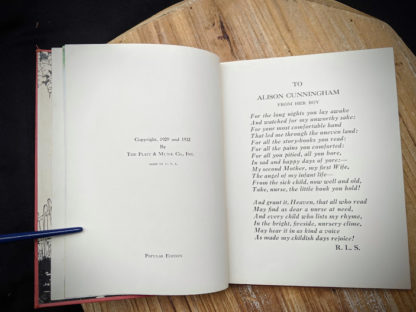 Copyright, 1929 and 1932
By
THE PLATT & MUNK CO., INC.
MADE IN U. S. A.
POPULAR EDITION
TO
ALISON CUNNINGHAM
FROM HER BOY
For the long nights you lay awake
And watched for my unworthy sake:
For your most comfortable hand
That led me through the uneven land:
For all the story-books you read:
For all the pains you comforted:
For all you pitied, all you bore,
In sad and happy days of yore:—
My second Mother, my first Wife,
The angel of my infant life—
From the sick child, now well and old,
Take, nurse, the little book you hold!
And grant it, Heaven, that all who read
May find as dear a nurse at need,
And every child who lists my rhyme,
In the bright, fireside, nursery clime,
May hear it in as kind a voice
As made my childish days rejoice!
R. L. S.